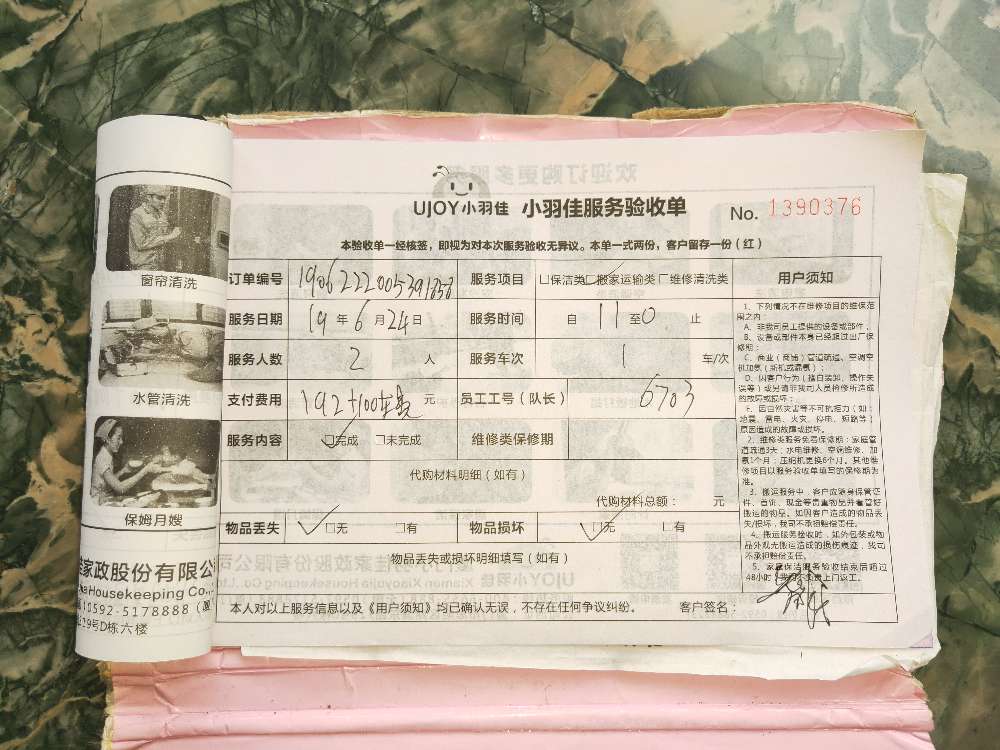 UJOY小羽佳 小羽佳服务验收单 No. 1390376
本验收单一经核签，即视为对本次服务验收无异议。本单一式两份，客户留存一份（红）
订单编号 服务项目 □保洁类 □搬家运输类 □维修清洗类 用户须知
服务日期 19 年 6 月 24 日 服务时间 自 11 至 0 止
服务人数 2 人 服务车次 1 车/次
支付费用 192+100 元 员工工号（队长） 6703
服务内容 □完成 □未完成 维修类保修期
代购材料明细（如有）
代购材料总额： 元
物品丢失 □无 □有 物品损坏 □无 □有
物品丢失或损坏明细填写（如有）
本人对以上服务信息以及《用户须知》均已确认无误，不存在任何争议纠纷。 客户签名：
1、下列情况不在维修项目的维保范
围之内：
A、非我司员工提供的设备或部件；
B、设备或部件本身已经超过出厂保
修期；
C、商业（商铺）管道疏通、空调空
机加氨（新机或漏氨）；
D、因客户行为（擅自装卸、操作失
误等）或另请非我司人员检修所造成
的故障或损坏；
E、因自然灾害等不可抗拒力（如：
地震、雷电、火灾、停电、短路等）
原因造成的故障或损坏。
2、维修类服务免费保修期：家庭管
道疏通3天；水电维修、空调维修、加
氨1个月；压缩机更换6个月。其他维
修项目以服务验收单填写的保修期为
准。
3、搬运服务中，客户应随身保管证
件、首饰、现金等贵重物品并看管好
搬运的物品。如因客户造成的物品丢
失/损坏，我司不承担赔偿责任。
4、搬运服务验收时，如外包装或物
品外观无搬运造成的损伤痕迹，我司
不承担赔偿责任。
5、家庭保洁服务验收结束后超过
48小时，
窗帘清洗
水管清洗
保姆月嫂
家政股份有限公
Housekeeping Co.,
0592-5178888
19号D栋六楼